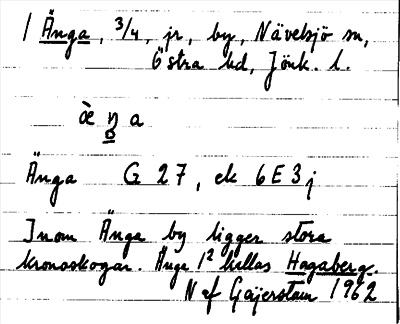 1 Änga, 3/4, jr, by, Nävelsjö sn,
Östra hd, Jönk. l.
æ̀ ŋ a
o
Änga G 27, ek 6E3j
Inom Änga by ligger stora
kronoskogar. Änga 1² kallas Hagaberg.
N af Geijerstam 1962